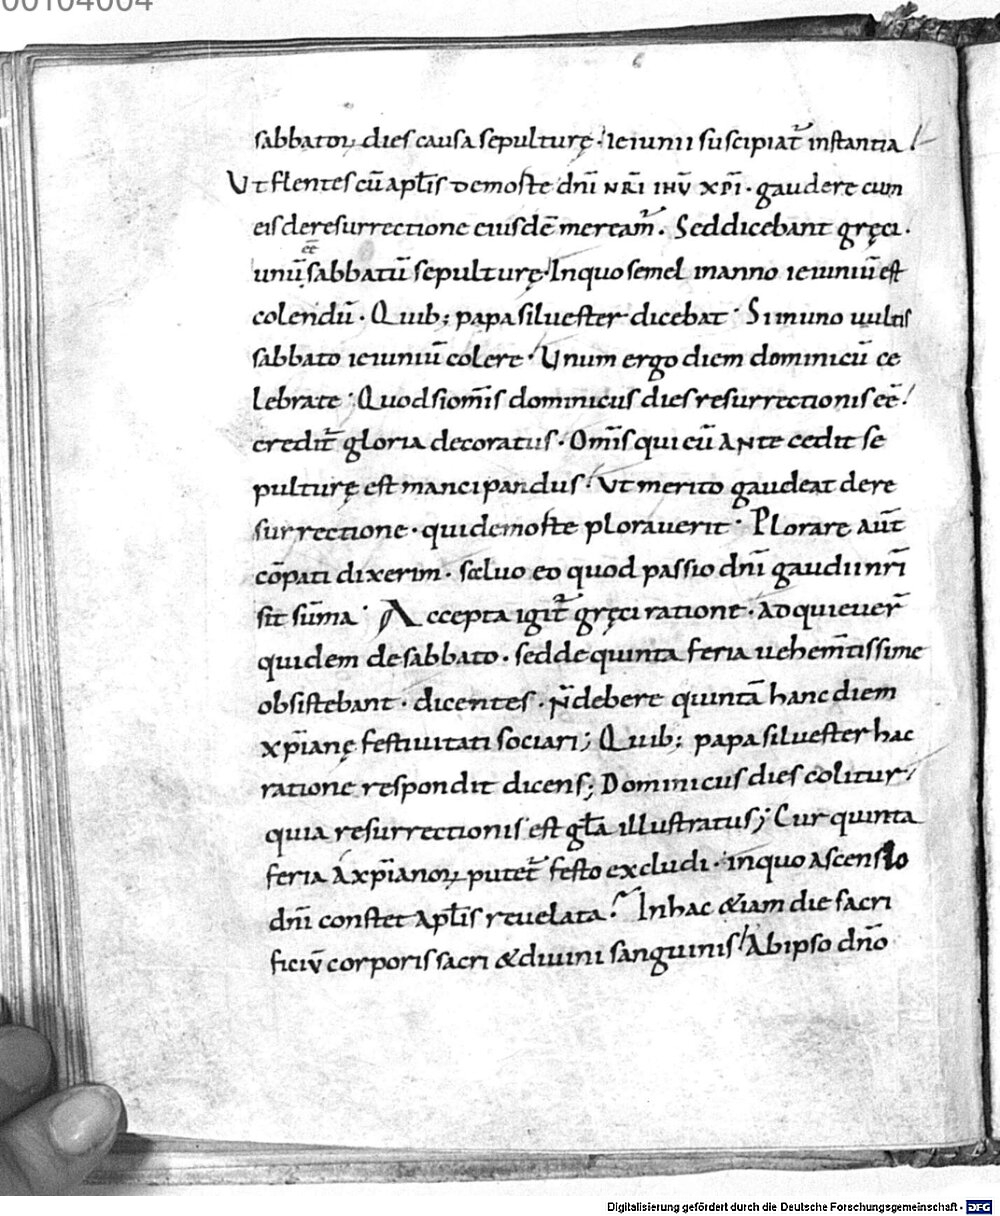 00104004
sabbatoꝝ dies causa sepulturę. Ieiunii suscipiat̄ instantia
Ut flentes cū apl̄is de moste dn̄i nr̄i ihū xp̄i. gaudere cum
eis de resurrectione eiusdē meream̄. Sed dicebant gręci.
ee̅
unū sabbatū sepulturę. In quo semel in anno ieiuniū est
colendū. Quib; papa siluester dicebat. Si in uno uultis
sabbato ieiuniū colere. Unum ergo diem dominicū ce
lebrate. Quod si om̄is dominicus dies resurrectionis ee̅
credit̄ gloria decoratus. Om̄is qui eū ante cedit se
pulturę est mancipandus. Ut merito gaudeat de re
surrectione. qui de moste plorauerit. Plorare aūt
cōpati dixerim. sæluo eo quod passio dn̄i gaudii nr̄i
sit sūma. Accepta igit̄ gręci ratione. adquieuer̄
quidem de sabbato. sed de quinta feria uehem̄tissime
obsistebant. dicentes. n̄ debere quintā hanc diem
xp̄ianę festiuitati sociari; Quib; papa siluester hac
ratione respondit dicens; Dominicus dies colitur
quia resurrectionis est gl̄a illustratus; Cur quinta
feria a xp̄ianoꝝ putet̄ festo excludi. in quo ascensio
dn̄i constet apl̄is reuelata. In hac &iam die sacri
ficiū corporis sacri & diuini sanguinis Ab ipso dn̄o
Digitalisierung gefördert durch die Deutsche Forschungsgemeinschaft - DFG